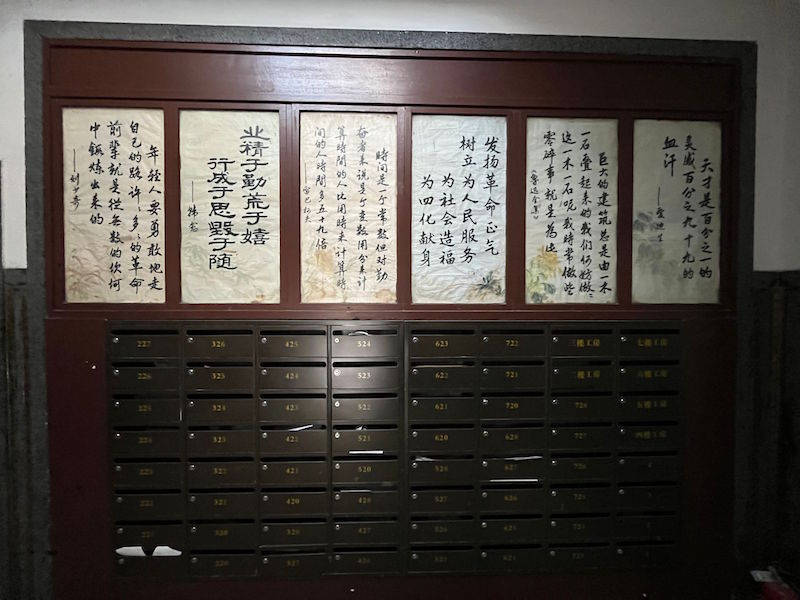 年轻人要勇敢地走
自己的路许多々的革命
前辈就是从無数的坎坷
中锻炼出来的
——刘少奇
业精于勤荒于嬉
行成于思毁于随
——韩愈
時间是一个常数但对勤
奋者来说是个变数用分来计
算時間的人比用時来计算時
间的人時間多五十九倍
——雷巴柯夫
发扬革命正气
树立为人民服务
为社会造福
为四化献身
巨大的建筑总是由一木
一石叠起来的我们何妨做々
这一木一石呢我時常做些
零碎事就是為此
《鲁迅全集》
天才是百分之一的
灵感百分之九十九的
血汗
——爱迪生
227 326 425 524 623 722 三楼工房 七楼工房
226 325 424 523 622 721 二楼工房 六楼工房
225 324 423 522 621 720 728 五楼工房
224 323 422 521 620 628 727 四楼工房
223 322 421 520 528 627 726
222 321 420 428 527 626 725
221 320 328 427 526 625 724
327 426